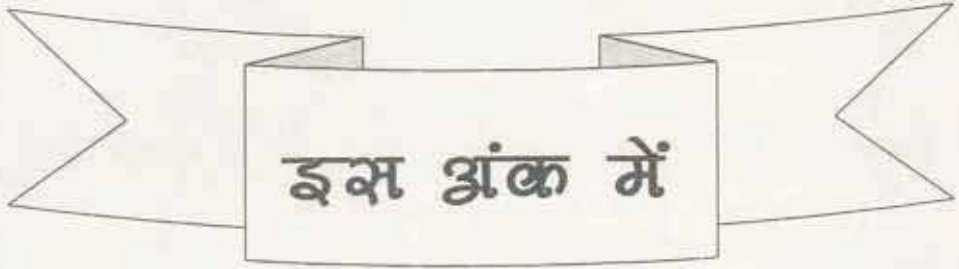 इस अंक में